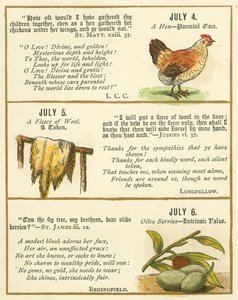 "How oft would I have gathered thy
children together, even as a hen gathereth her
chickens under her wings, and ye would not."
St. Matt. xxiii. 37.
O Love! Divine, and golden!
Mysterious depth and height!
To Thee, the world, beholden,
Looks up for life and light!
O Love! Divine and gentle!
The Blesser and the blest!
Beneath whose care parental
The world lies down to rest!"
L. C. C.
JULY 4.
A Hen—Parental Care.
JULY 5.
A Fleece of Wool.
A Token.
"I will put a fleece of wool in the floor;
and if the dew be on the fleece only, then shall I
know that thou wilt save Israel by mine hand,
as thou hast said."—Judges vi. 37.
Thanks for the sympathies that ye have
shown!
Thanks for each kindly word, each silent
token,
That teaches me, when seeming most alone,
Friends are around us, though no word is
spoken.
Longfellow.
"Can the fig tree, my brethren, bear olive
berries?"—St. James iii. 12.
A modest blush adorns her face,
Her air, an unaffected grace:
No art she knows, or seeks to know;
No charm to wealthy pride, will owe;
No gems, no gold, she needs to wear;
She shines, intrinsically fair.
Bedingfield.
JULY 6.
Olive Berries—Intrinsic Value.